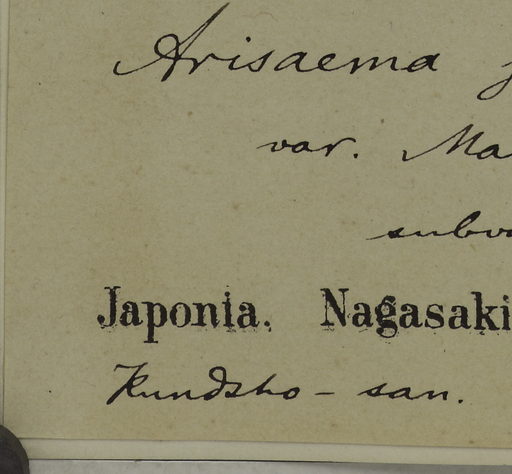 Arisaema j
var. Ma
subva
Japonia. Nagasaki
Kundsho-san.